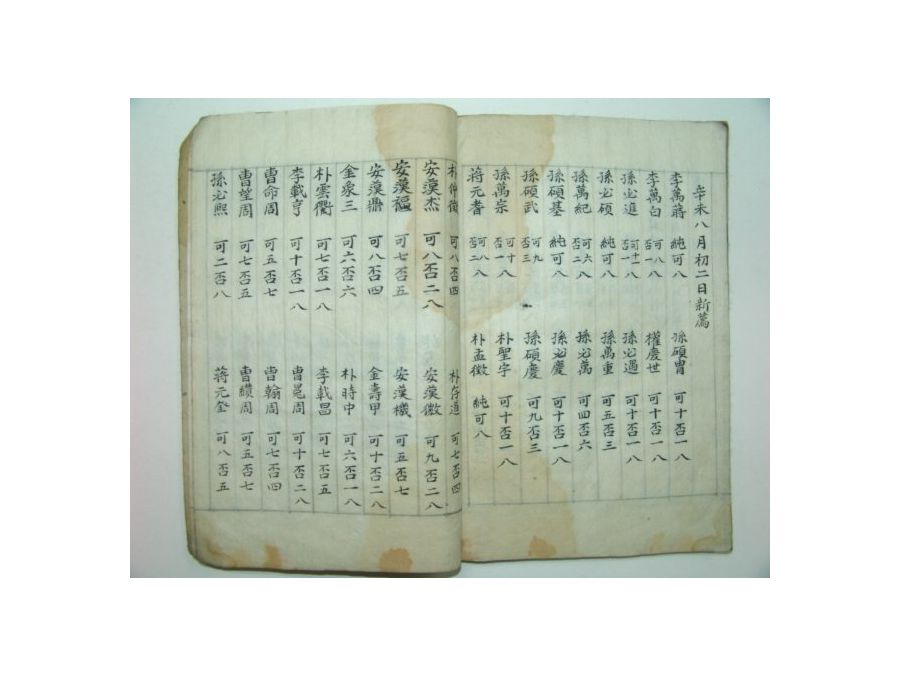 辛未八月初二日新薦
李萬蔣 純可八 孫碩胄 可十否一八
李萬白 可八否一八 權慶世 可十否一八
孫必進 可十一否一八 孫必過 可十否一八
孫必碩 純可八 孫萬重 可五否三
孫萬紀 可六否二八 孫必萬 可四否六
孫碩基 純可八 孫必慶 可十否一八
孫碩武 可九否三 孫碩慶 可九否三
孫萬宗 可十否一八 朴聖字 可十否一八
蔣元耆 可八否二八 朴孟徵 純可八
朴仲徵 可八否四 朴存道 可七否四
安漢杰 可八否二八 安漢徵 可九否二八
安漢福 可七否五 安漢機 可五否七
安漢鼎 可八否四 金壽甲 可十否二八
金象三 可六否六 朴時中 可六否一八
朴雲衢 可七否一八 李載昌 可七否五
李載亨 可十否一八 曺冕周 可十否二八
曺命周 可五否七 曺翰周 可七否四
曺望周 可七否五 曺纘周 可五否七
孫必熙 可二否八 蔣元奎 可八否五